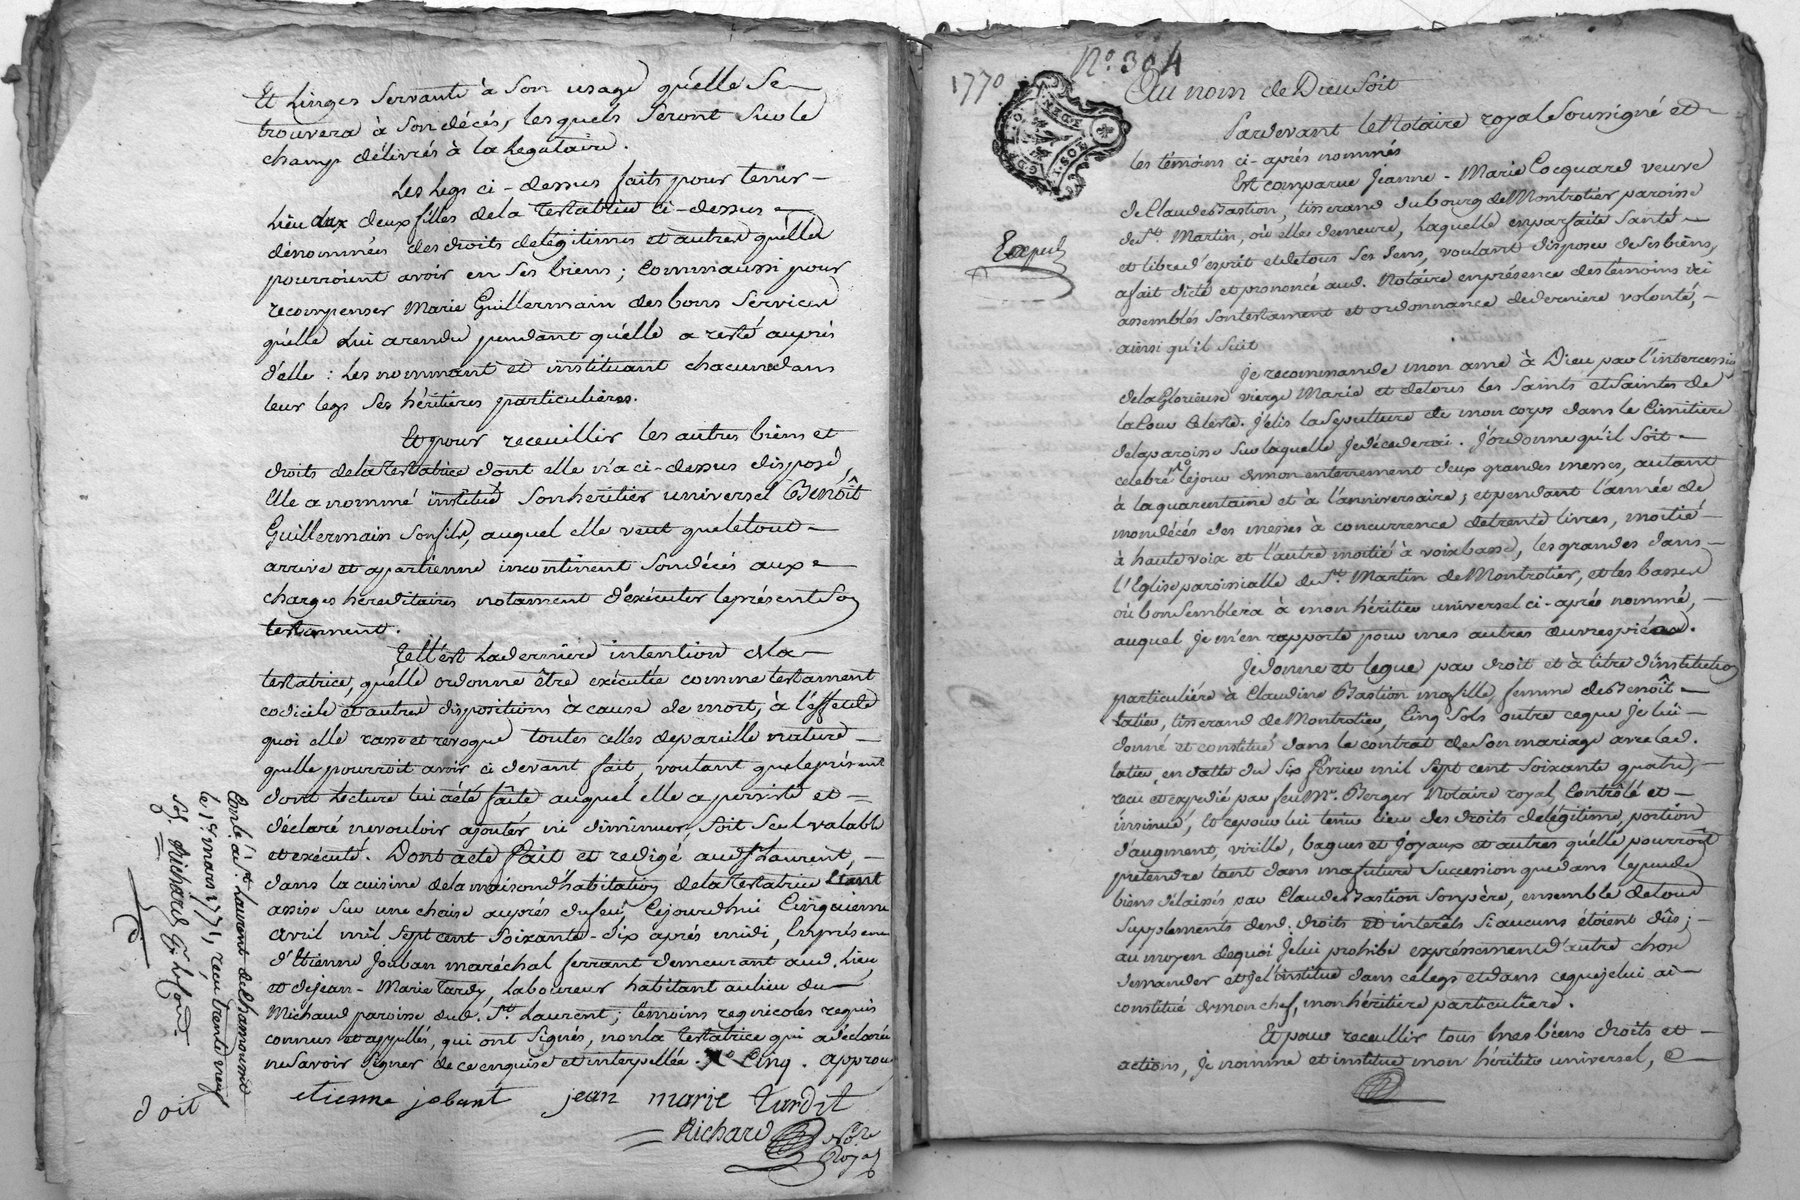 Et Linges servants à son usage qu'elle se
trouvera à son décés, lesquels seront sur le
champ délivrés à la Legataire.
Les Legs ci-dessus faits pour tenir
Lieu aux deux filles de la testatrice ci-dessus
dénommées des droits de légitimes et autres qu'elles
pourroient avoir en ses biens; comm'aussi pour
recompenser Marie Guillermain des bons services
qu'elle Lui a rendu pendant qu'elle a resté auprés
d'elle: Les nommant et instituant chacune dans
leur legs ses héritieres particulieres.
Et pour receuillir les autres biens et
droits de la testatrice dont elle n'a ci-dessus disposé,
Elle a nommé institué son heritier universel Benoît
Guillermain son fils, auquel elle veut que le tout
arrive et apartienne incontinent son décés aux
charges héréditaires notament d'exécuter le présent son
testament.
Tell'est La derniere intention de la
testatrice, qu'elle ordonne être exécutée comme testament
codicile et autres dispositions à cause de mort, à l'effet de
quoi elle casse et revoque toutes celles de pareille nature
quelle pourroit avoir ci devant fait, voulant que le présent
dont Lecture lui a été faite auquel elle a persisté et
déclaré ne vouloir ajouter ni diminuer, soit seul valable
et exécuté. Dont acte fait et redigé aud. St. Laurent,
dans la cuisine de la maison d'habitation de la testatrice étant
assise sur une chaise auprés du feu, Cejourdhui Cinquieme
avril mil sept cent soixante-dix aprés midi, En présence
d'Etienne Jouban maréchal ferrant demeurant aud. Lieu
et de Jean-Marie Tardy Laboureur habitant au lieu du
Michaud paroisse dud. St. Laurent; temoins regnicoles requis
connus et appellés, qui ont signés, non la testatrice qui a déclaré
ne savoir signer de ce enquise et interpellée. Cinq. approu
etienne jobant jean marie tardit
Richard
No.re
Royal
Conlé. à St. Laurent de Chamousset
le 1er. mars 1771, reçu trente neuf
sols
doit
1770
No. 304
Au nom de Dieu soit
Pardevant le Notaire royal soussigné et
les témoins ci-aprés nommés
Est comparue Jeanne-Marie Cocquard veuve
de Claude Bastion, tisserand du bourg de Montrotier paroisse
de St. Martin, où elle demeure, Laquelle en parfaite santé
et libre d'esprit et de tous ses sens, voulant disposer de ses biens,
a fait dicté et prononcé aud. Notaire en présence des témoins ici
assemblés son testament et ordonnance de derniere volonté,
ainsi qu'il suit
Expié
Je recommande mon ame à Dieu par l'intercession
de la Glorieuse vierge Marie et de tous les Saints et Saintes de
la Cour Céleste. J'élis la sepulture de mon corps dans le Cimitiere
de la paroisse sur laquelle je décederai. J'ordonne qu'il soit
celebré le jour de mon enterrement deux grandes messes, autant
à la quarentaine et à l'anniversaire; et pendant l'année de
mon décés des messes à concurrence de trente livres, moitié
à haute voix et l'autre moitié à voix basse, les grandes dans
l'Eglise paroissialle de St. Martin de Montrotier, et les basses
où bon semblera à mon héritier universel ci-aprés nommé,
auquel je m'en rapporte pour mes autres œuvres pieuses.
Je donne et legue par droit et à titre d'institution
particuliére à Claudine Bastion ma fille, femme de Benoît
Ratieu, tisserand de Montrotier, Cinq sols outre ce que je lui
donné et constitué dans le contrat de son mariage avec led.
Ratieu en datte du six fevrier mil sept cent soixante quatre,
reçu et expedié par feu Me. Berger Notaire royal, Contrôlé et
insinué, Et ce pour lui tenir lieu des droits de légitime, portion
d'augment, virille, bagues et joyaux et autres qu'elle pourroit
prétendre tant dans ma future succession que dans le peu de
biens délaissés par Claude Bastion son père, ensemble de tous
supplements desd. droits et intérêts si aucuns étoient dûs;
au moyen de quoi je lui prohibe expréssement d'autre chose
demander et je l'institue dans ce legs et dans ce que je lui ai
constitué de mon chef, mon héritiére particuliére.
Et pour receuillir tous mes biens droits et
actions, je nomme et institue mon héritier universel,